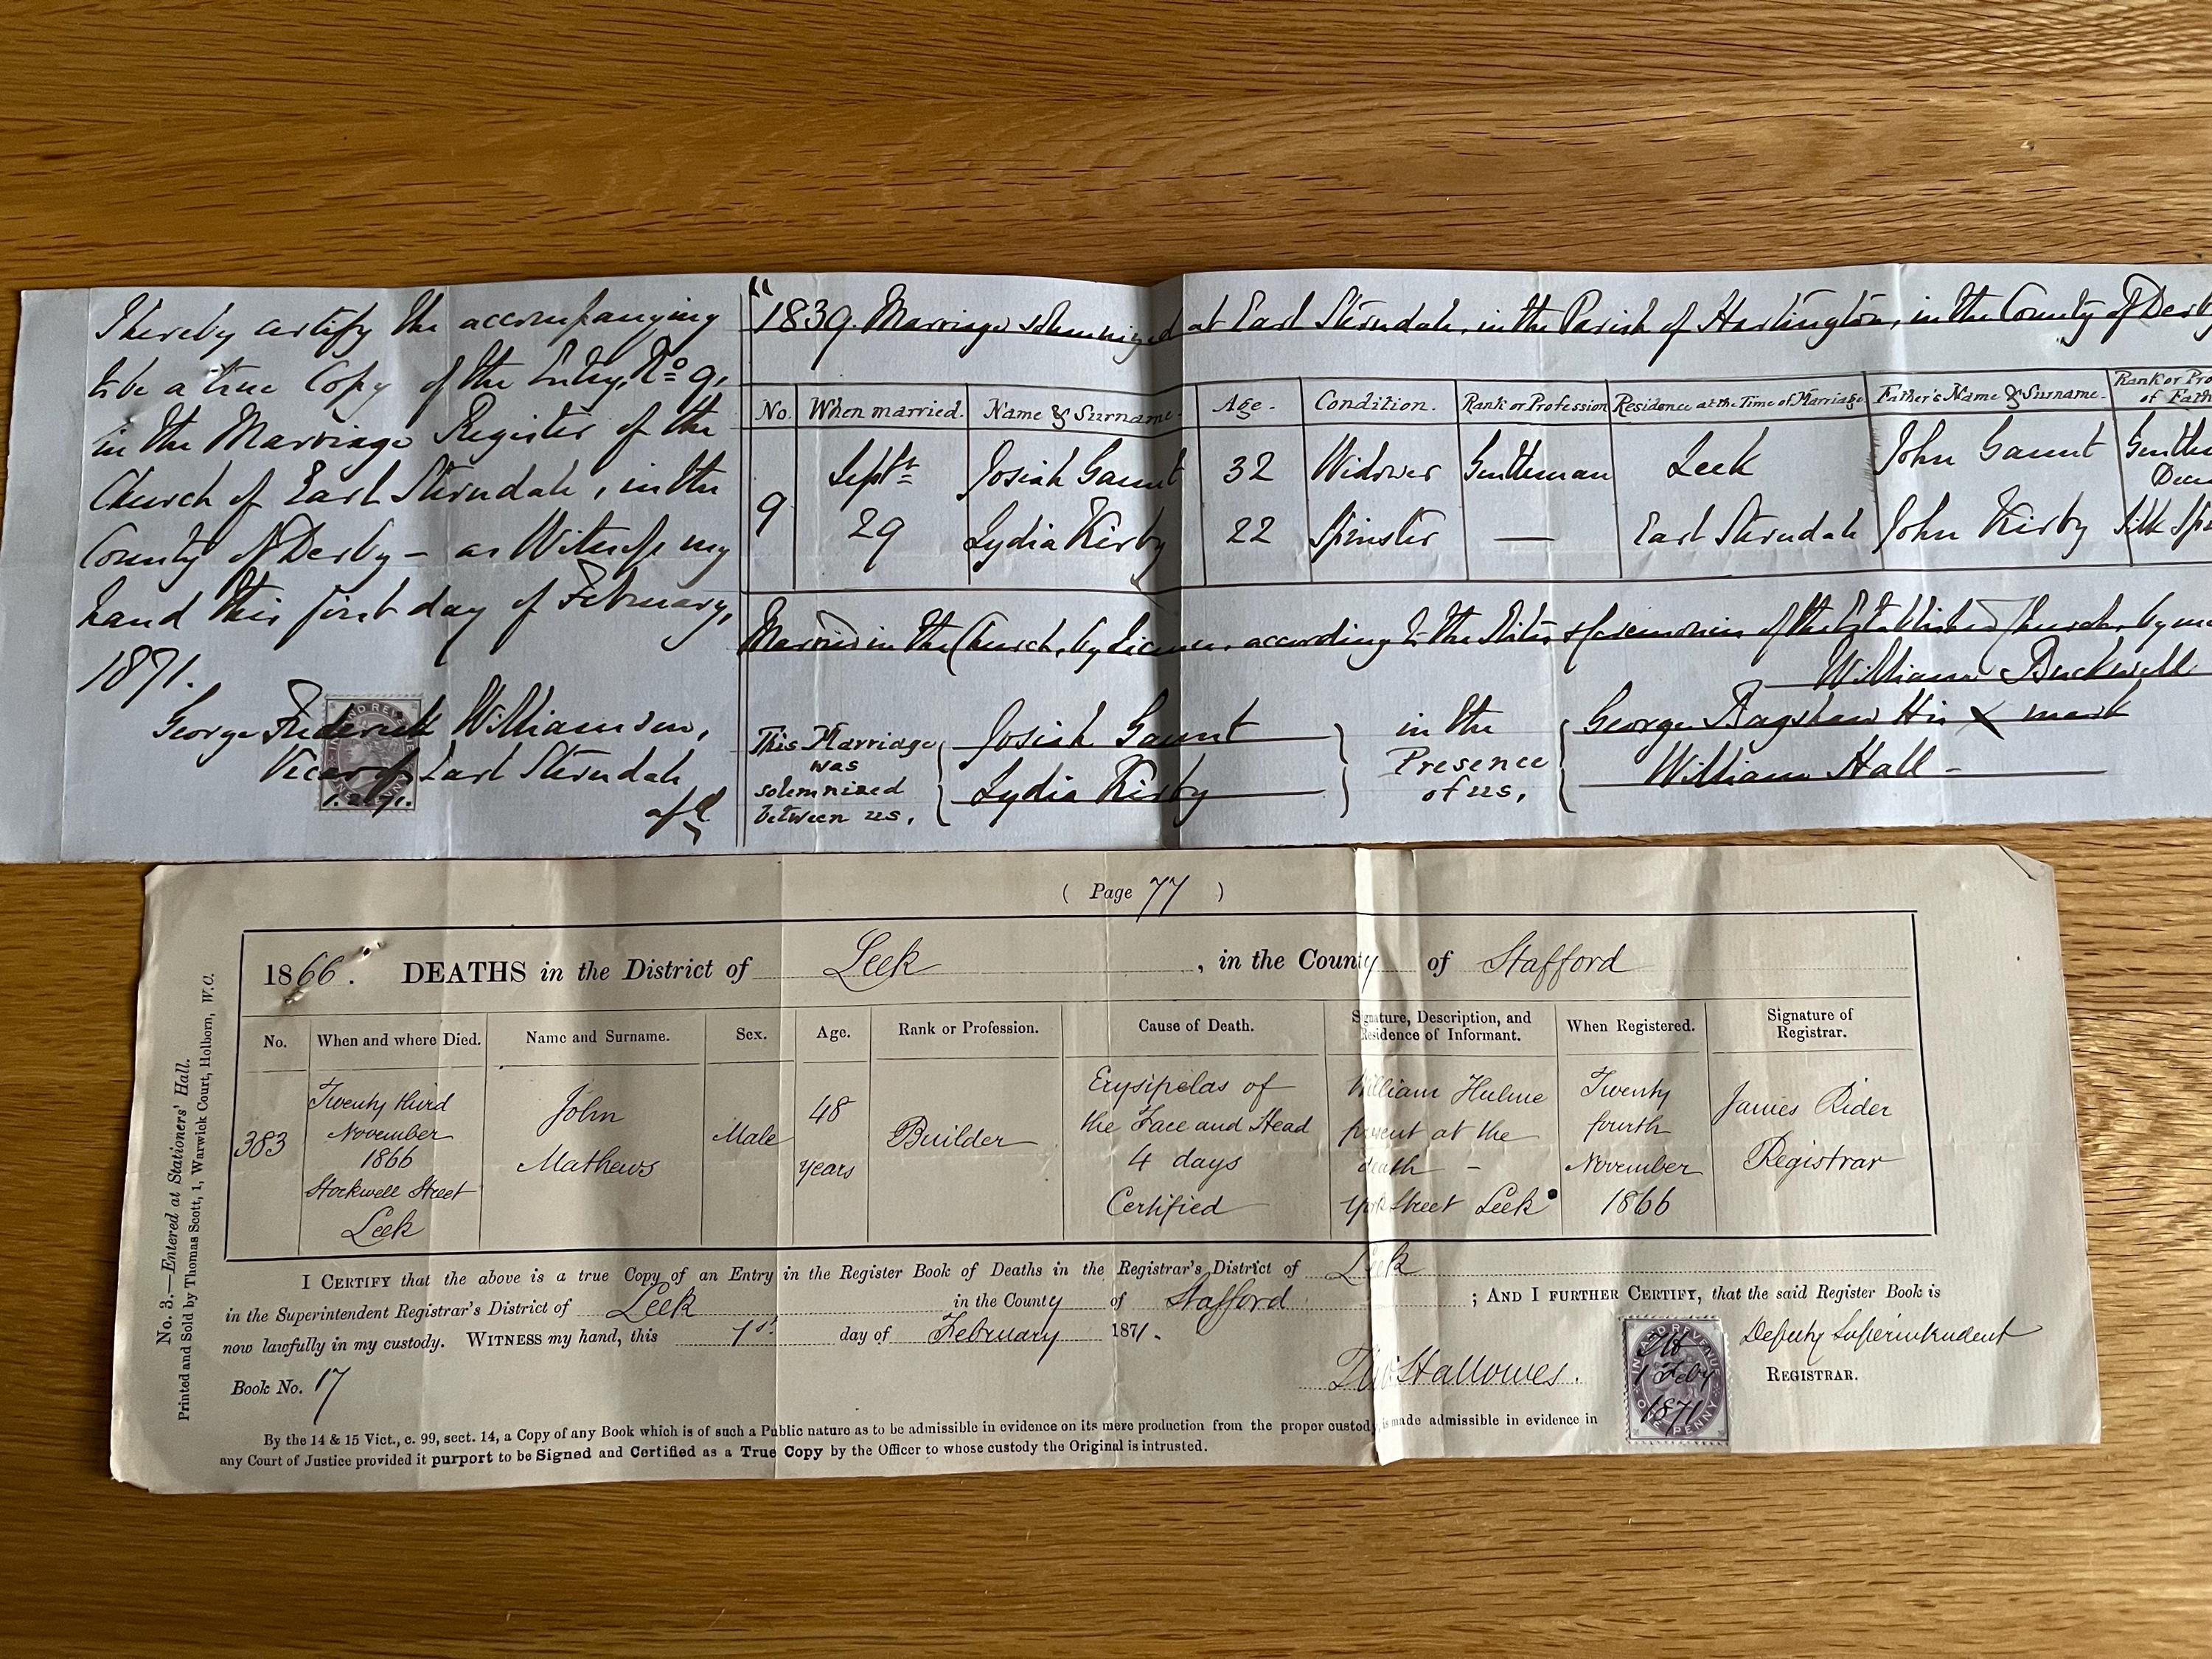 I hereby certify the accompanying
to be a true Copy of the Entry, No 9,
in the Marriage Register of the
Church of Earl Sterndale, in the
County of Derby – as Witness my
hand this first day of February,
1871.
George Frederick Williamson,
Vicar of Earl Sterndale
1.2.71.
"1839. Marriage solemnized at Earl Sterndale, in the Parish of Hartington, in the County of Derby
No. When married. Name & Surname. Age. Condition. Rank or Profession Residence at the Time of Marriage. Father's Name & Surname. Rank or Pro
of Fath
9 Septr 29
Josiah Gaunt 32 Widower Gentleman Leek John Gaunt Gentle
Dece
Lydia Kirby 22 Spinster — Earl Sterndale John Kirby Silk Spin
Married in the Church, by Licence, according to the Rites & Ceremonies of the Established Church, by me
William Buckwell
This Marriage
was
solemnized
between us,
Josiah Gaunt
Lydia Kirby
in the
Presence
of us,
George Bagshaw His X mark
William Hall –
( Page 77 )
1866. DEATHS in the District of Leek, in the County of Stafford
No. When and where Died. Name and Surname. Sex. Age. Rank or Profession. Cause of Death. Signature, Description, and
Residence of Informant. When Registered. Signature of
Registrar.
383
Twenty third
November
1866
Stockwell Street
Leek
John
Mathews
Male
48
years
Builder
Erysipelas of
the Face and Head
4 days
Certified
William Hulme
present at the
death –
York Street Leek
Twenty
fourth
November
1866
James Rider
Registrar
I CERTIFY that the above is a true Copy of an Entry in the Register Book of Deaths in the Registrar's District of Leek
in the Superintendent Registrar's District of Leek in the County of Stafford ; AND I FURTHER CERTIFY, that the said Register Book is
now lawfully in my custody. WITNESS my hand, this 1st day of February 1871.
Thos Hallowes. Deputy Superintendent
REGISTRAR.
INLAND REVENUE
ONE PENNY
TH
1 Feby
1871
Book No. 17
By the 14 & 15 Vict., c. 99, sect. 14, a Copy of any Book which is of such a Public nature as to be admissible in evidence on its mere production from the proper custody is made admissible in evidence in
any Court of Justice provided it purport to be Signed and Certified as a True Copy by the Officer to whose custody the Original is intrusted.
No. 3.—Entered at Stationers' Hall.
Printed and Sold by Thomas Scott, 1, Warwick Court, Holborn, W.C.